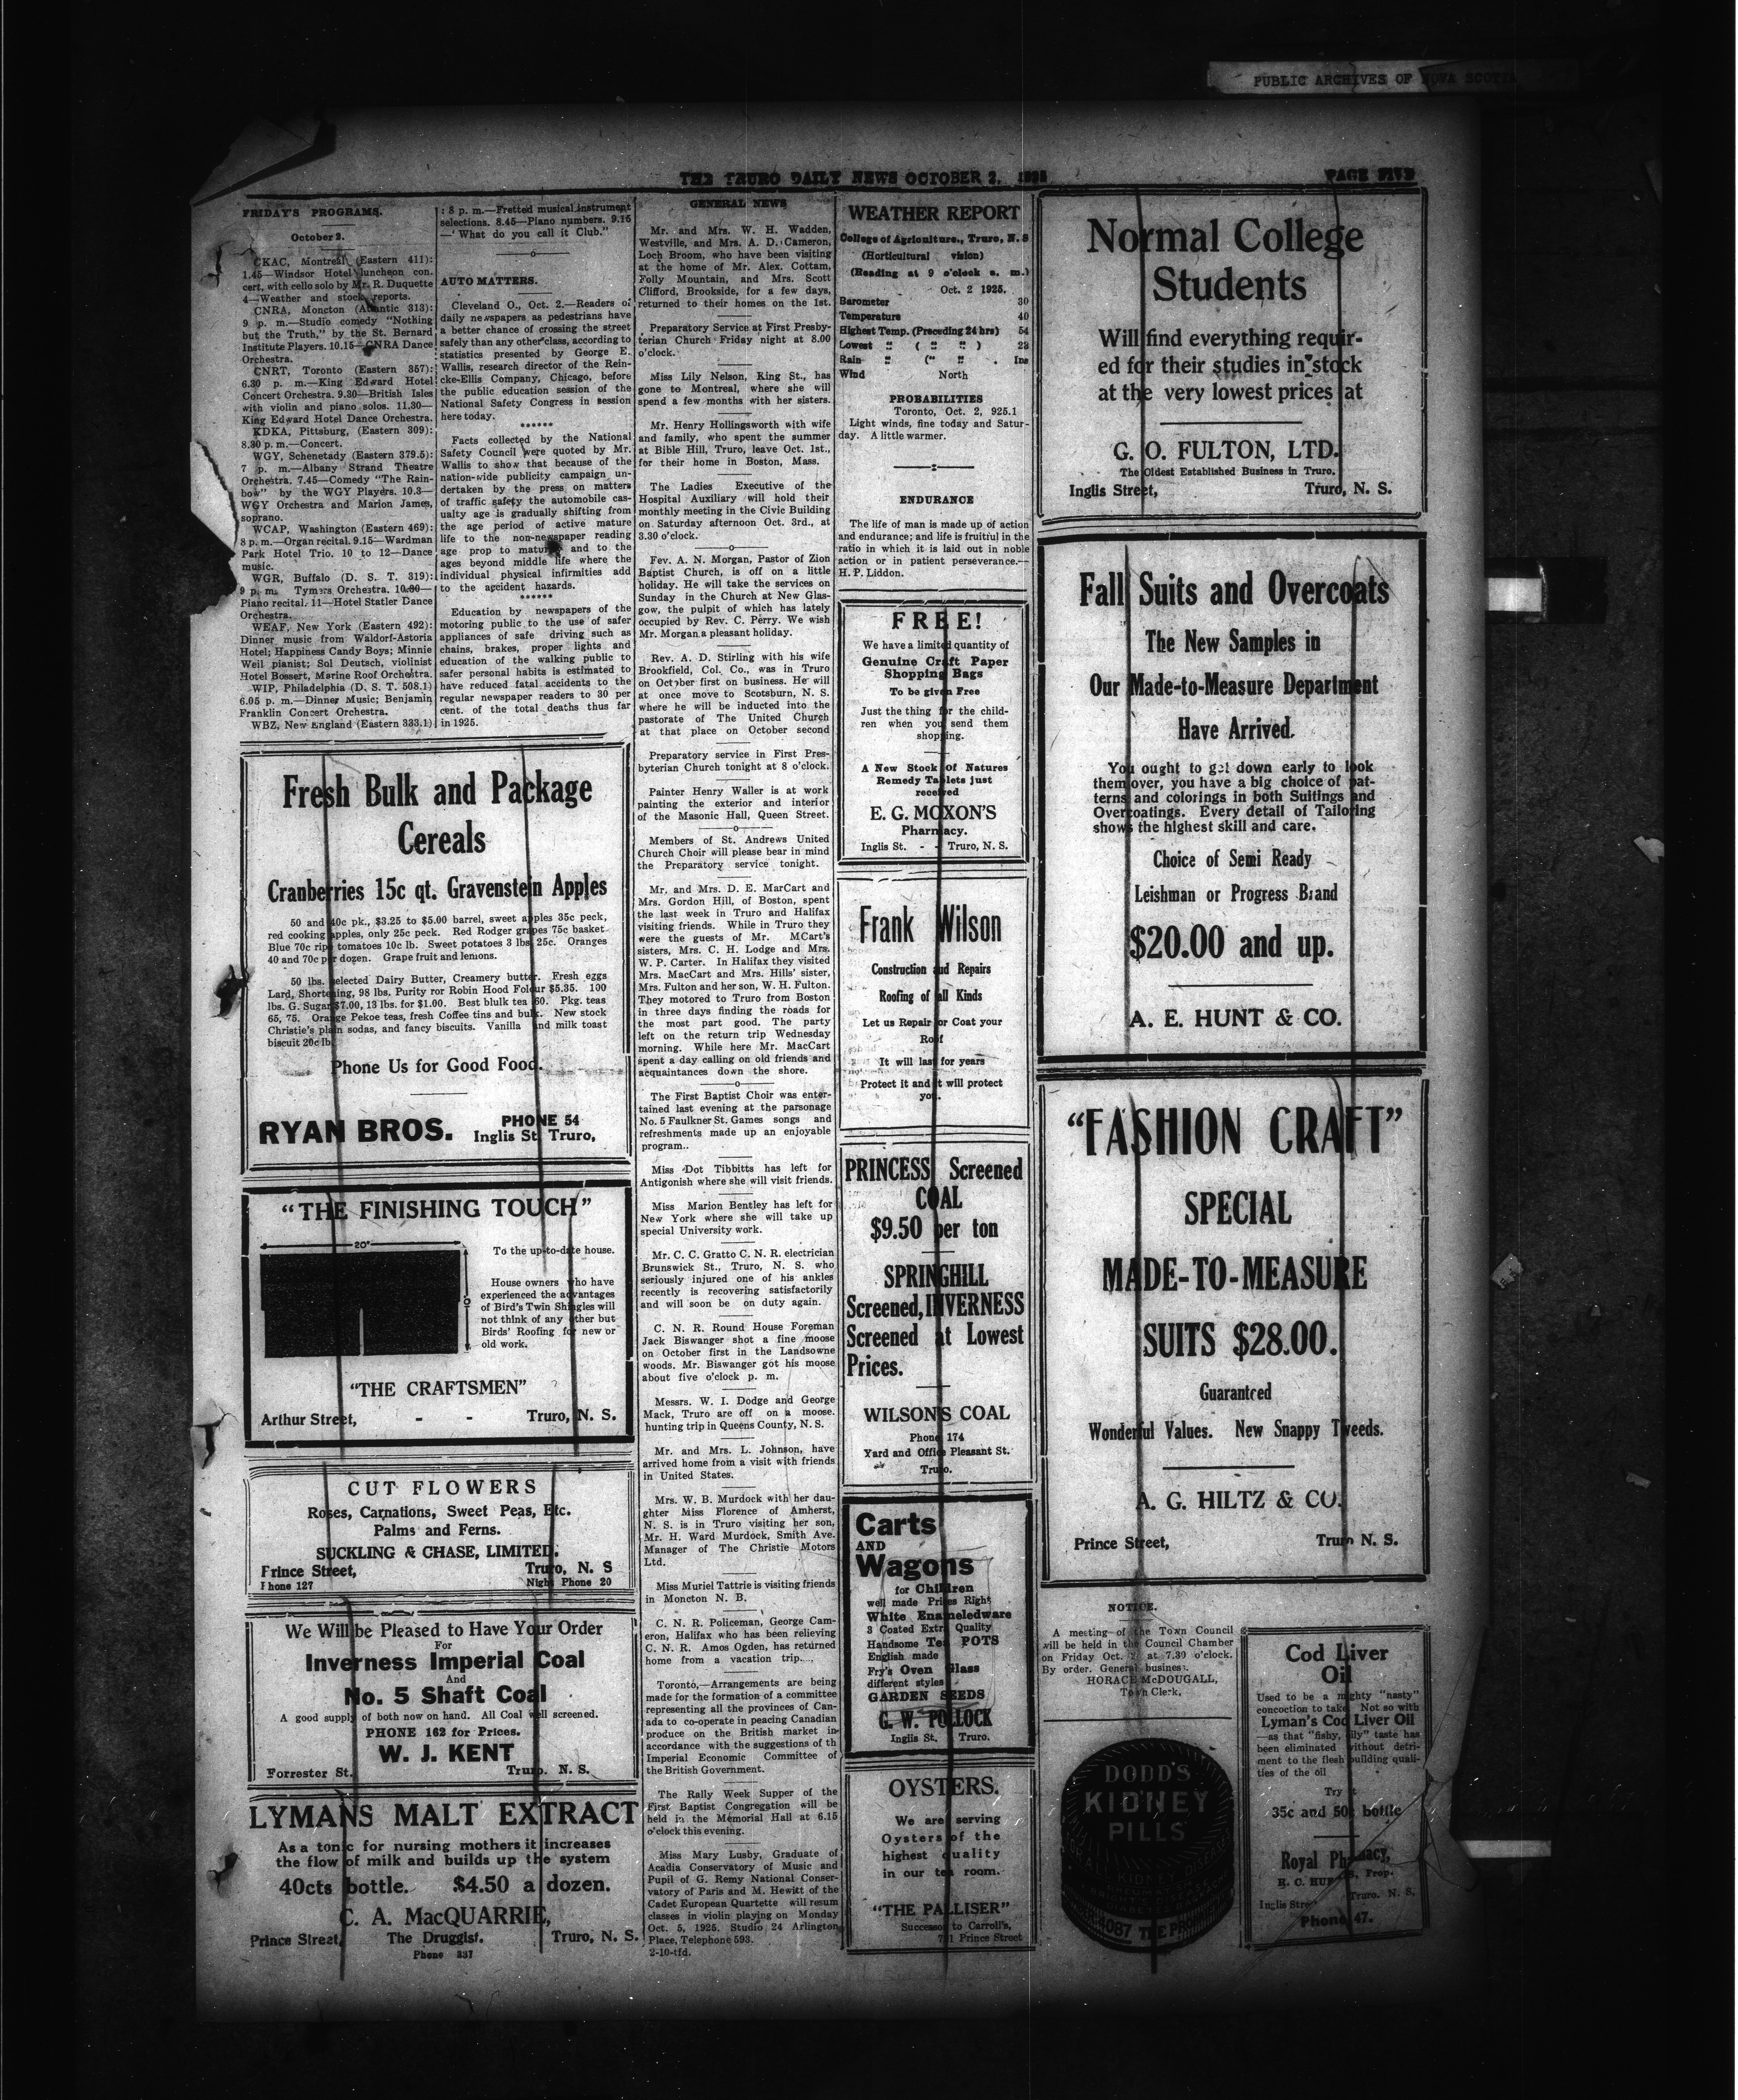 PUBLIC ARCHIVES OF NOVA SCOTIA
THE TRURO DAILY NEWS OCTOBER 2, 1925
PAGE FIVE
FRIDAY'S PROGRAMS.
October 2.
CKAC, Montreal (Eastern 411):
1.45—Windsor Hotel luncheon con.
cert, with cello solo by Mr. R. Duquette
4—Weather and stock reports.
CNRA, Moncton (Atlantic 313):
9 p. m.—Studio comedy "Nothing
but the Truth," by the St. Bernard
Institute Players. 10.15—CNRA Dance
Orchestra.
CNRT, Toronto (Eastern 357):
6.30 p. m.—King Edward Hotel
Concert Orchestra. 9.30—British Isles
with violin and piano solos. 11.30—
King Edward Hotel Dance Orchestra.
KDKA, Pittsburg, (Eastern 309):
8.30 p. m.—Concert.
WGY, Schenetady (Eastern 379.5):
7 p. m.—Albany Strand Theatre
Orchestra. 7.45—Comedy "The Rain-
bow" by the WGY Players. 10.3—
WGY Orchestra and Marion James,
soprano.
WCAP, Washington (Eastern 469):
8 p. m.—Organ recital. 9.15—Wardman
Park Hotel Trio. 10 to 12—Dance
music.
WGR, Buffalo (D. S. T. 319):
9 p. m. Tymers Orchestra. 10.00—
Piano recital. 11—Hotel Statler Dance
Orchestra.
WEAF, New York (Eastern 492):
Dinner music from Waldorf-Astoria
Hotel; Happiness Candy Boys; Minnie
Weil pianist; Sol Deutsch, violinist
Hotel Bossert, Marine Roof Orchestra.
WIP, Philadelphia (D. S. T. 508.1)
6.05 p. m.—Dinner Music; Benjamin
Franklin Concert Orchestra.
WBZ, New England (Eastern 333.1)
: 8 p. m.—Fretted musical instrument
selections. 8.45—Piano numbers. 9.15
—'What do you call it Club."
AUTO MATTERS.
Cleveland O., Oct. 2.—Readers of
daily newspapers as pedestrians have
a better chance of crossing the street
safely than any other class, according to
statistics presented by George E.
Wallis, research director of the Rein-
cke-Ellis Company, Chicago, before
the public education session of the
National Safety Congress in session
here today.
******
Facts collected by the National
Safety Council were quoted by Mr.
Wallis to show that because of the
nation-wide publicity campaign un-
dertaken by the press on matters
of traffic safety the automobile cas-
ualty age is gradually shifting from
the age period of active mature
life to the non-newspaper reading
age prop to and to the
ages beyond middle life where the
individual physical infirmities add
to the accident hazards.
******
Education by newspapers of the
motoring public to the use of safer
appliances of safe driving such as
chains, brakes, proper lights and
education of the walking public to
safer personal habits is estimated to
have reduced fatal accidents to the
regular newspaper readers to 30 per
cent. of the total deaths thus far
in 1925.
Fresh Bulk and Package
Cereals
Cranberries 15c qt. Gravenstein Apples
50 and 40c pk., $3.25 to $5.00 barrel, sweet apples 35c peck,
red cooking apples, only 25c peck. Red Rodger grapes 75c basket
Blue 70c ripe tomatoes 10c lb. Sweet potatoes 3 lbs 25c. Oranges
40 and 70c per dozen. Grape fruit and lemons.
50 lbs. selected Dairy Butter, Creamery butter. Fresh eggs
Lard, Shortening, 98 lbs. Purity ror Robin Hood Folour $5.35. 100
lbs. G. Sugar $7.00, 13 lbs. for $1.00. Best blulk tea 60. Pkg. teas
65, 75. Orange Pekoe teas, fresh Coffee tins and bulk. New stock
Christie's plain sodas, and fancy biscuits. Vanilla and milk toast
biscuit 20c lb.
Phone Us for Good Food.
RYAN BROS.
PHONE 54
Inglis St. Truro,
"THE FINISHING TOUCH"
20"
To the up-to-date house.
House owners who have
experienced the advantages
of Bird's Twin Shingles will
not think of any other but
Birds' Roofing for new or
old work.
"THE CRAFTSMEN"
Arthur Street, - - Truro, N. S.
CUT FLOWERS
Roses, Carnations, Sweet Peas, Etc.
Palms and Ferns.
SUCKLING & CHASE, LIMITED.
Prince Street, Truro, N. S
Phone 127 Night Phone 20
We Will be Pleased to Have Your Order
For
Inverness Imperial Coal
And
No. 5 Shaft Coal
A good supply of both now on hand. All Coal well screened.
PHONE 162 for Prices.
W. J. KENT
Forrester St. Truro. N. S.
LYMANS MALT EXTRACT
As a tonic for nursing mothers it increases
the flow of milk and builds up the system
40cts bottle. $4.50 a dozen.
C. A. MacQUARRIE,
Prince Street, The Druggist. Truro, N. S.
Phone 337
GENERAL NEWS
Mr. and Mrs. W. H. Wadden,
Westville, and Mrs. A. D. Cameron,
Loch Broom, who have been visiting
at the home of Mr. Alex. Cottam,
Folly Mountain, and Mrs. Scott
Clifford, Brookside, for a few days,
returned to their homes on the 1st.
Preparatory Service at First Presby-
terian Church Friday night at 8.00
o'clock.
Miss Lily Nelson, King St., has
gone to Montreal, where she will
spend a few months with her sisters.
Mr. Henry Hollingsworth with wife
and family, who spent the summer
at Bible Hill, Truro, leave Oct. 1st.,
for their home in Boston, Mass.
The Ladies Executive of the
Hospital Auxiliary will hold their
monthly meeting in the Civic Building
on Saturday afternoon Oct. 3rd., at
3.30 o'clock.
Fev. A. N. Morgan, Pastor of Zion
Baptist Church, is off on a little
holiday. He will take the services on
Sunday in the Church at New Glas-
gow, the pulpit of which has lately
occupied by Rev. C. Perry. We wish
Mr. Morgan a pleasant holiday.
Rev. A. D. Stirling with his wife
Brookfield, Col. Co., was in Truro
on October first on business. He will
at once move to Scotsburn, N. S.
where he will be inducted into the
pastorate of The United Church
at that place on October second
Preparatory service in First Pres-
byterian Church tonight at 8 o'clock.
Painter Henry Waller is at work
painting the exterior and interior
of the Masonic Hall, Queen Street.
Members of St. Andrews United
Church Choir will please bear in mind
the Preparatory service tonight.
Mr. and Mrs. D. E. MarCart and
Mrs. Gordon Hill, of Boston, spent
the last week in Truro and Halifax
visiting friends. While in Truro they
were the guests of Mr. MCart's
sisters, Mrs. C. H. Lodge and Mrs.
W. P. Carter. In Halifax they visited
Mrs. MacCart and Mrs. Hills' sister,
Mrs. Fulton and her son, W. H. Fulton.
They motored to Truro from Boston
in three days finding the roads for
the most part good. The party
left on the return trip Wednesday
morning. While here Mr. MacCart
spent a day calling on old friends and
acquaintances down the shore.
The First Baptist Choir was enter-
tained last evening at the parsonage
No. 5 Faulkner St. Games songs and
refreshments made up an enjoyable
program..
Miss Dot Tibbitts has left for
Antigonish where she will visit friends.
Miss Marion Bentley has left for
New York where she will take up
special University work.
Mr. C. C. Gratto C. N. R. electrician
Brunswick St., Truro, N. S. who
seriously injured one of his ankles
recently is recovering satisfactorily
and will soon be on duty again.
C. N. R. Round House Foreman
Jack Biswanger shot a fine moose
on October first in the Landsowne
woods. Mr. Biswanger got his moose
about five o'clock p. m.
Messrs. W. I. Dodge and George
Mack, Truro are off on a moose.
hunting trip in Queens County, N. S.
Mr. and Mrs. L. Johnson, have
arrived home from a visit with friends
in United States.
Mrs. W. B. Murdock with her dau-
ghter Miss Florence of Amherst,
N. S. is in Truro visiting her son,
Mr. H. Ward Murdock, Smith Ave.
Manager of The Christie Motors
Ltd.
Miss Muriel Tattrie is visiting friends
in Moncton N. B.
C. N. R. Policeman, George Cam-
eron, Halifax who has been relieving
C. N. R. Amos Ogden, has returned
home from a vacation trip....
Toronto,—Arrangements are being
made for the formation of a committee
representing all the provinces of Can-
ada to co-operate in peacing Canadian
produce on the British market in
accordance with the suggestions of th
Imperial Economic Committee of
the British Government.
The Rally Week Supper of the
First Baptist Congregation will be
held in the Memorial Hall at 6.15
o'clock this evening.
Miss Mary Lusby, Graduate of
Acadia Conservatory of Music and
Pupil of G. Remy National Conser-
vatory of Paris and M. Hewitt of the
Cadet European Quartette will resum
classes in violin playing on Monday
Oct. 5, 1925. Studio 24 Arlington
Place, Telephone 593.
2-10-tfd.
WEATHER REPORT
College of Agriculture., Truro, N. S
(Horticultural vision)
(Heading at 9 o'clock a. m.)
Oct. 2 1925.
Barometer 30
Temperature 40
Highest Temp. (Preceding 24 hrs) 54
Lowest " ( " " ) 28
Rain " (" " . Ins
Wind North
PROBABILITIES
Toronto, Oct. 2, 925.1
Light winds, fine today and Satur-
day. A little warmer.
ENDURANCE
The life of man is made up of action
and endurance; and life is fruitful in the
ratio in which it is laid out in noble
action or in patient perseverance.—
H. P. Liddon.
FREE!
We have a limited quantity of
Genuine Craft Paper
Shopping Bags
To be given Free
Just the thing for the child-
ren when you send them
shopping.
A New Stock Of Natures
Remedy Tablets just
received
E. G. MOXON'S
Pharmacy.
Inglis St. - - Truro, N. S.
Frank Wilson
Construction and Repairs
Roofing of all Kinds
Let us Repair or Coat your
Roof
It will last for years
Protect it and it will protect
you.
PRINCESS Screened
COAL
$9.50 per ton
SPRINGHILL
Screened, INVERNESS
Screened at Lowest
Prices.
WILSON'S COAL
Phone 174
Yard and Office Pleasant St.
Truro.
Carts
AND
Wagons
for Children
well made Prices Right
White Enameledware
3 Coated Extra Quality
Handsome Tea POTS
English made
Fry's Oven Glass
different styles
GARDEN SEEDS
G. W. POLLOCK
Inglis St. Truro.
OYSTERS.
We are serving
Oysters of the
highest quality
in our tea room.
"THE PALLISER"
Successor to Carroll's,
Prince Street
Normal College
Students
Will find everything requir-
ed for their studies in stock
at the very lowest prices at
G. O. FULTON, LTD.
The Oldest Established Business in Truro,
Inglis Street, Truro, N. S.
Fall Suits and Overcoats
The New Samples in
Our Made-to-Measure Department
Have Arrived.
You ought to get down early to look
them over, you have a big choice of pat-
terns and colorings in both Suitings and
Overcoatings. Every detail of Tailoring
shows the highest skill and care.
Choice of Semi Ready
Leishman or Progress Brand
$20.00 and up.
A. E. HUNT & CO.
"FASHION CRAFT"
SPECIAL
MADE-TO-MEASURE
SUITS $28.00.
Guaranteed
Wonderful Values. New Snappy Tweeds.
A. G. HILTZ & CO.
Prince Street, Truro N. S.
NOTICE.
A meeting of the Town Council
will be held in the Council Chamber
on Friday Oct. at 7.30 o'clock.
By order. General business.
HORACE McDOUGALL,
Town Clerk,
DODD'S
KIDNEY
PILLS
Cod Liver
Oil
Used to be a mighty "nasty"
concoction to take. Not so with
Lyman's Cod Liver Oil
—as that "fishy, oily" taste has
been eliminated without detri-
ment to the flesh building quali-
ties of the oil
Try it
35c and 50c bottle
Royal Pharmacy,
Prop.
Inglis Stre Truro. N. S.
Phone 47.